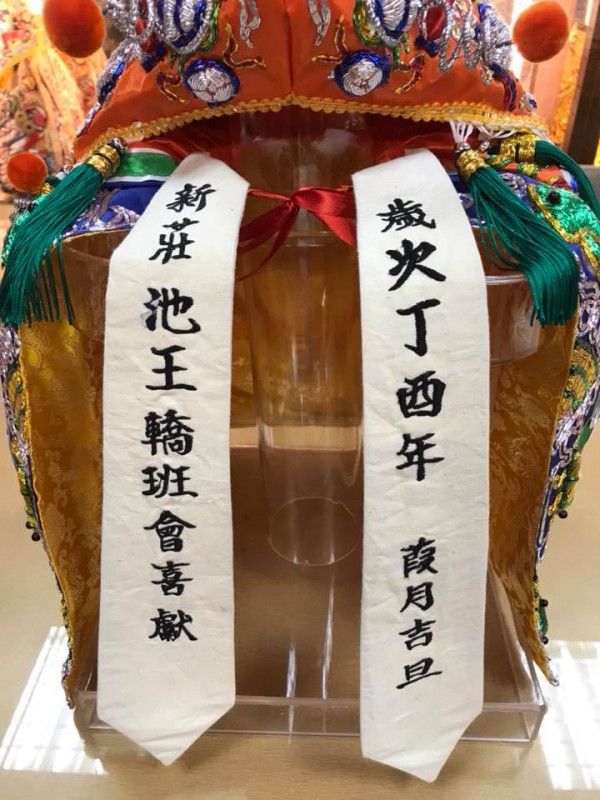 歲次丁酉年 葭月吉旦
新莊池王轎班會喜獻